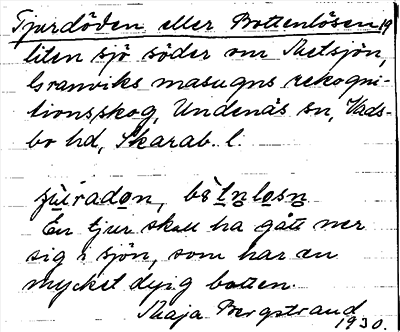 Tjurdöden eller Bottenlösen, 19
liten sjö söder om Metsjön,
Granviks masugns rekogni-
tionsskog, Undenäs sn, Vads-
bo hd, Skarab. l.
bò
En tjur skall ha gått ner
sig i sjön, som har en
mycket dyig botten.
Maja Bergstrand
1930.